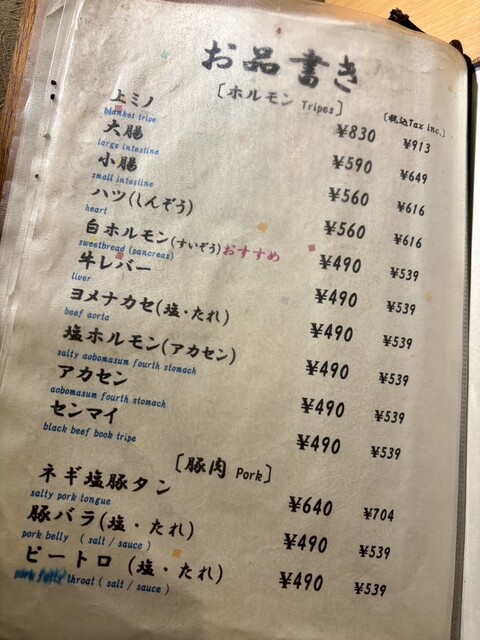 お品書き
[ホルモン Tripes] [税込Tax inc.]
上ミノ ¥830 ¥913
blanket tripe
大腸 ¥590 ¥649
large intestine
小腸 ¥560 ¥616
small intestine
ハツ(しんぞう) ¥560 ¥616
heart
白ホルモン(すいぞう)おすすめ ¥490 ¥539
sweetbread (pancreas)
牛レバー ¥490 ¥539
liver
ヨメナカセ(塩・たれ) ¥490 ¥539
beef aorta
塩ホルモン(アカセン) ¥490 ¥539
salty aobomasum fourth stomach
アカセン ¥490 ¥539
aobomasum fourth stomach
センマイ ¥490 ¥539
black beef book tripe
[豚肉 Pork]
ネギ塩豚タン ¥640 ¥704
salty pork tongue
豚バラ(塩・たれ) ¥490 ¥539
pork belly ( salt / sauce )
ピートロ (塩・たれ) ¥490 ¥539
throat ( salt / sauce )